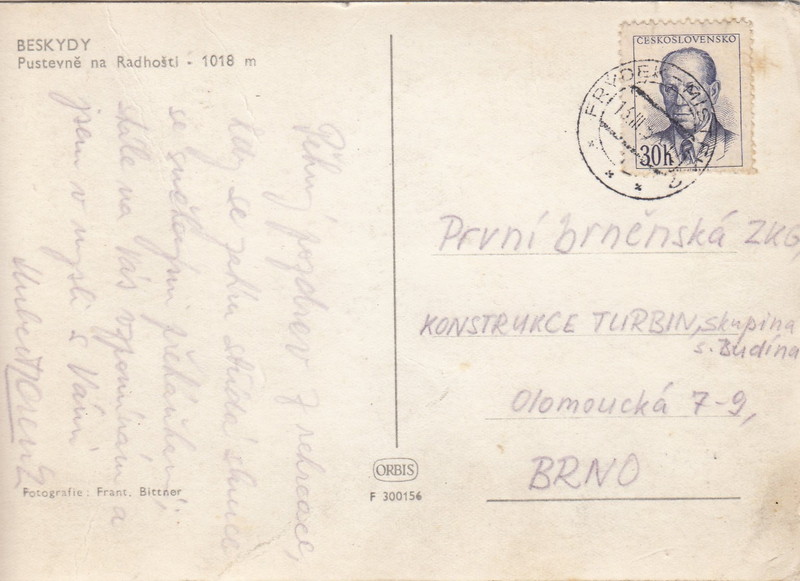 BESKYDY
Pustevně na Radhošti - 1018 m
Pěkný pozdrav z rekreace,
kdy se zde střídá slunce
se sněhovými přeháňkami,
stále na Vás vzpomínám a
jsem v mysli s Vámi
Fotografie: Frant. Bittner
ORBIS
F 300156
ČESKOSLOVENSKO
30h
FRÝDEK-MÍSTEK
První brněnská ZKG,
KONSTRUKCE TURBIN, skupina
s. Budína
Olomoucká 7-9,
BRNO